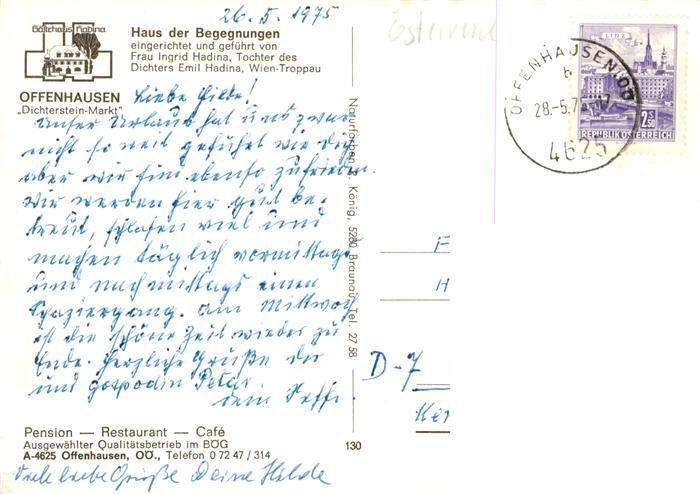 26.5.1975
Österreich
Gästehaus Hadina
Haus der Begegnungen
eingerichtet und geführt von
Frau Ingrid Hadina, Tochter des
Dichters Emil Hadina, Wien-Troppau
OFFENHAUSEN
„Dichterstein-Markt"
Liebe Hilde!
Unser Urlaub hat uns zwar
nicht so weit geführt wie dich
aber wir sind ebenso zufrieden.
Wir werden hier gut be-
treut, schlafen viel und
machen täglich vormittags
und nachmittags einen
Spaziergang. Am Mittwoch
ist die schöne Zeit wieder zu
Ende. Herzliche Grüße dir
und gospodin Peter.
dein
Pension — Restaurant — Café
Ausgewählter Qualitätsbetrieb im BÖG
A-4625 Offenhausen, OÖ., Telefon 0 72 47 / 314
130
Viele liebe Grüße Deine Hilde
Naturfarben König, 5280 Braunau, Tel. 27 58
LINZ
2.50
REPUBLIK ÖSTERREICH
OFFENHAUSEN, OÖ
b
28.-5.75
4625
F
H
D-7